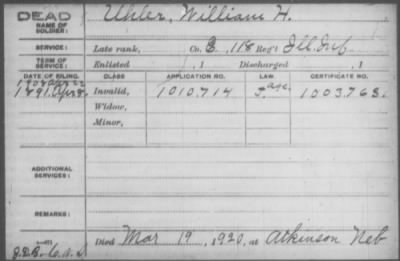 DEAD
NAME OF SOLDIER: Uhler, William H.
SERVICE: Late rank, Co. B, 118 Reg't Ill. Inf.
TERM OF SERVICE: Enlisted , 1 Discharged , 1
DATE OF FILING. CLASS APPLICATION NO. LAW. CERTIFICATE NO.
1891, Apr 8, Invalid, 1010.714 1003.768.
Widow,
Minor,
ADDITIONAL SERVICES:
REMARKS:
Died Mar 19, 1920, at Atkinson Neb